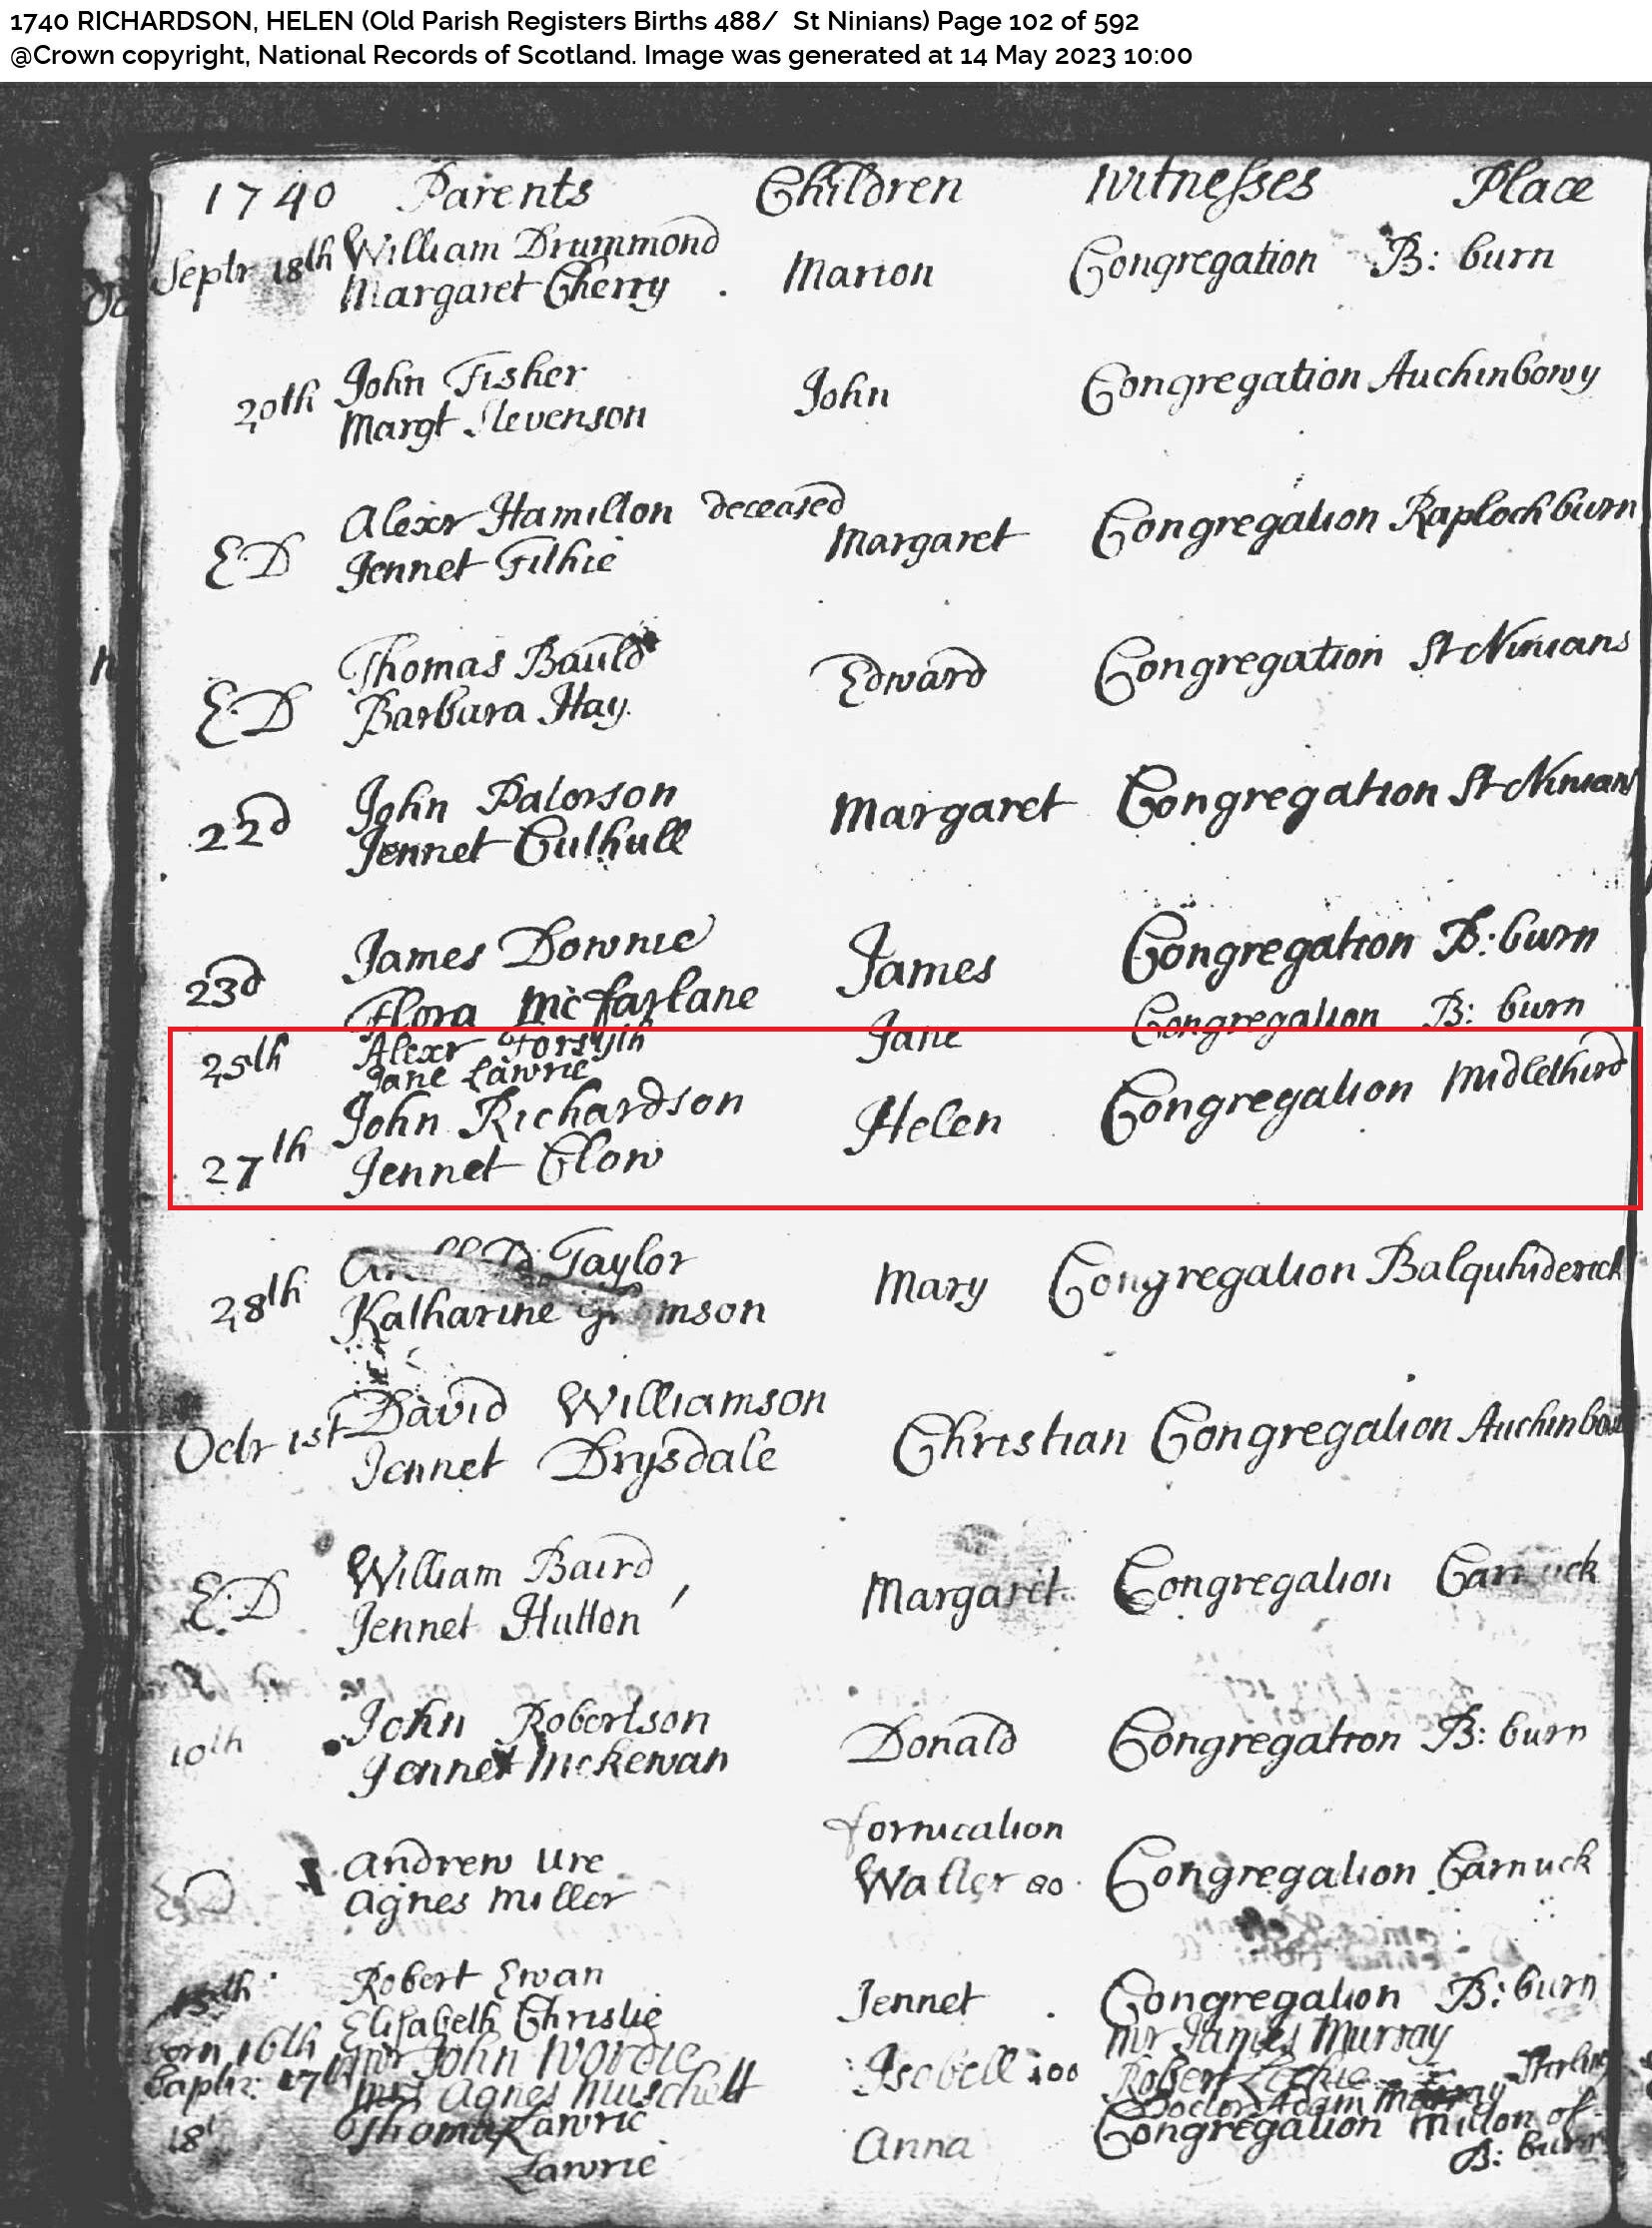 1740 RICHARDSON, HELEN (Old Parish Registers Births 488/ St Ninians) Page 102 of 592
@Crown copyright, National Records of Scotland. Image was generated at 14 May 2023 10:00
1740 Parents Children Witnesses Place
Septr 18th William Drummond
Margaret Cherry Marion Congregation B: burn
20th John Fisher
Margt Stevenson John Congregation Auchinbowy
ED Alexr Hamilton deceased
Jennet Filhie Margaret Congregation Raplochburn
ED Thomas Bauld
Barbara Hay Edward Congregation St Ninians
22d John Paterson
Jennet Cuthull Margaret Congregation St Ninians
23d James Downie
Flora McFarlane James Congregation B: burn
25th Alexr Forsyth
Jane Lawrie Jane Congregation B: burn
27th John Richardson
Jennet Clow Helen Congregation Midlethird
28th Taylor
Katharine Mary Congregation Balquhiderick
Octr 1st David Williamson
Jennet Drysdale Christian Congregation
ED William Baird
Jennet Hutton Margaret Congregation
10th John Robertson
Jennet McKewan Donald Congregation B: burn
fornication
Andrew Ure
Agnes Miller Walter Congregation Carnuck
15th Robert Ewan
Elisabeth Christie Jennet Congregation B: burn
born 16th Mr John Wordie Mr James Murray
baptiz: 17th Mrs Agnes Muschett Isobell Robert Sterling
Doctor Adam
18 Thomas Lawrie Congregation Millon of
Lawrie Anna B: burn